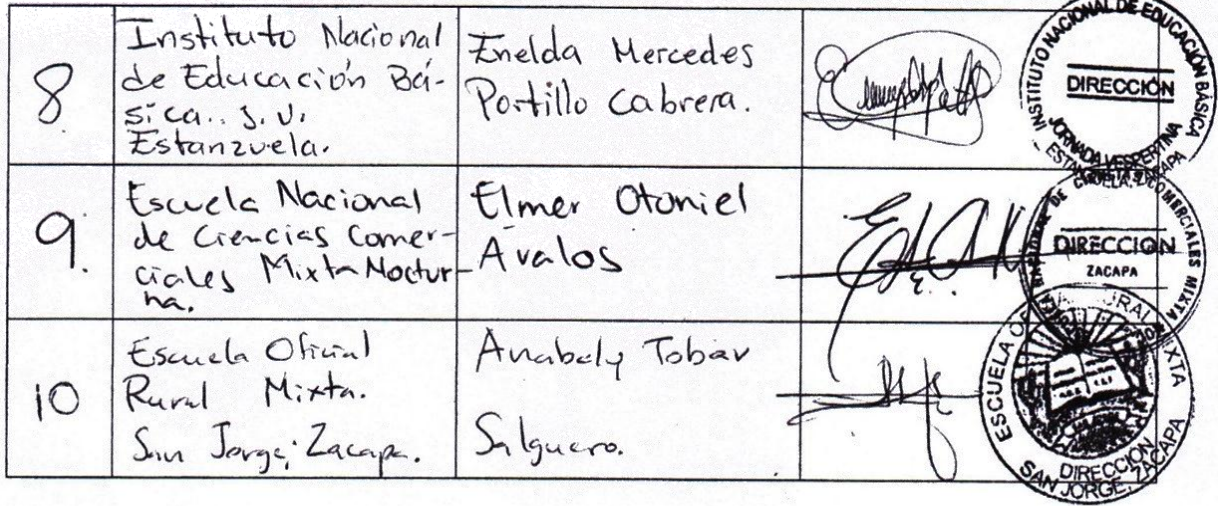 8
Instituto Nacional
de Educación Bá-
sica.. J. V.
Estanzuela.
Enelda Mercedes
Portillo Cabrera.
INSTITUTO NACIONAL DE EDUCACIÓN BÁSICA
DIRECCIÓN
JORNADA VESPERTINA
9.
Escuela Nacional
de Ciencias Comer-
ciales Mixta Noctur-
na.
Elmer Otoniel
Avalos
COMERCIALES MIXTA
DIRECCION
ZACAPA
10
Escuela Oficial
Rural Mixta.
San Jorge, Zacapa.
Anabely Tobar
Salguero.
ESCUELA
DIRECCION
SAN JORGE, ZACAPA